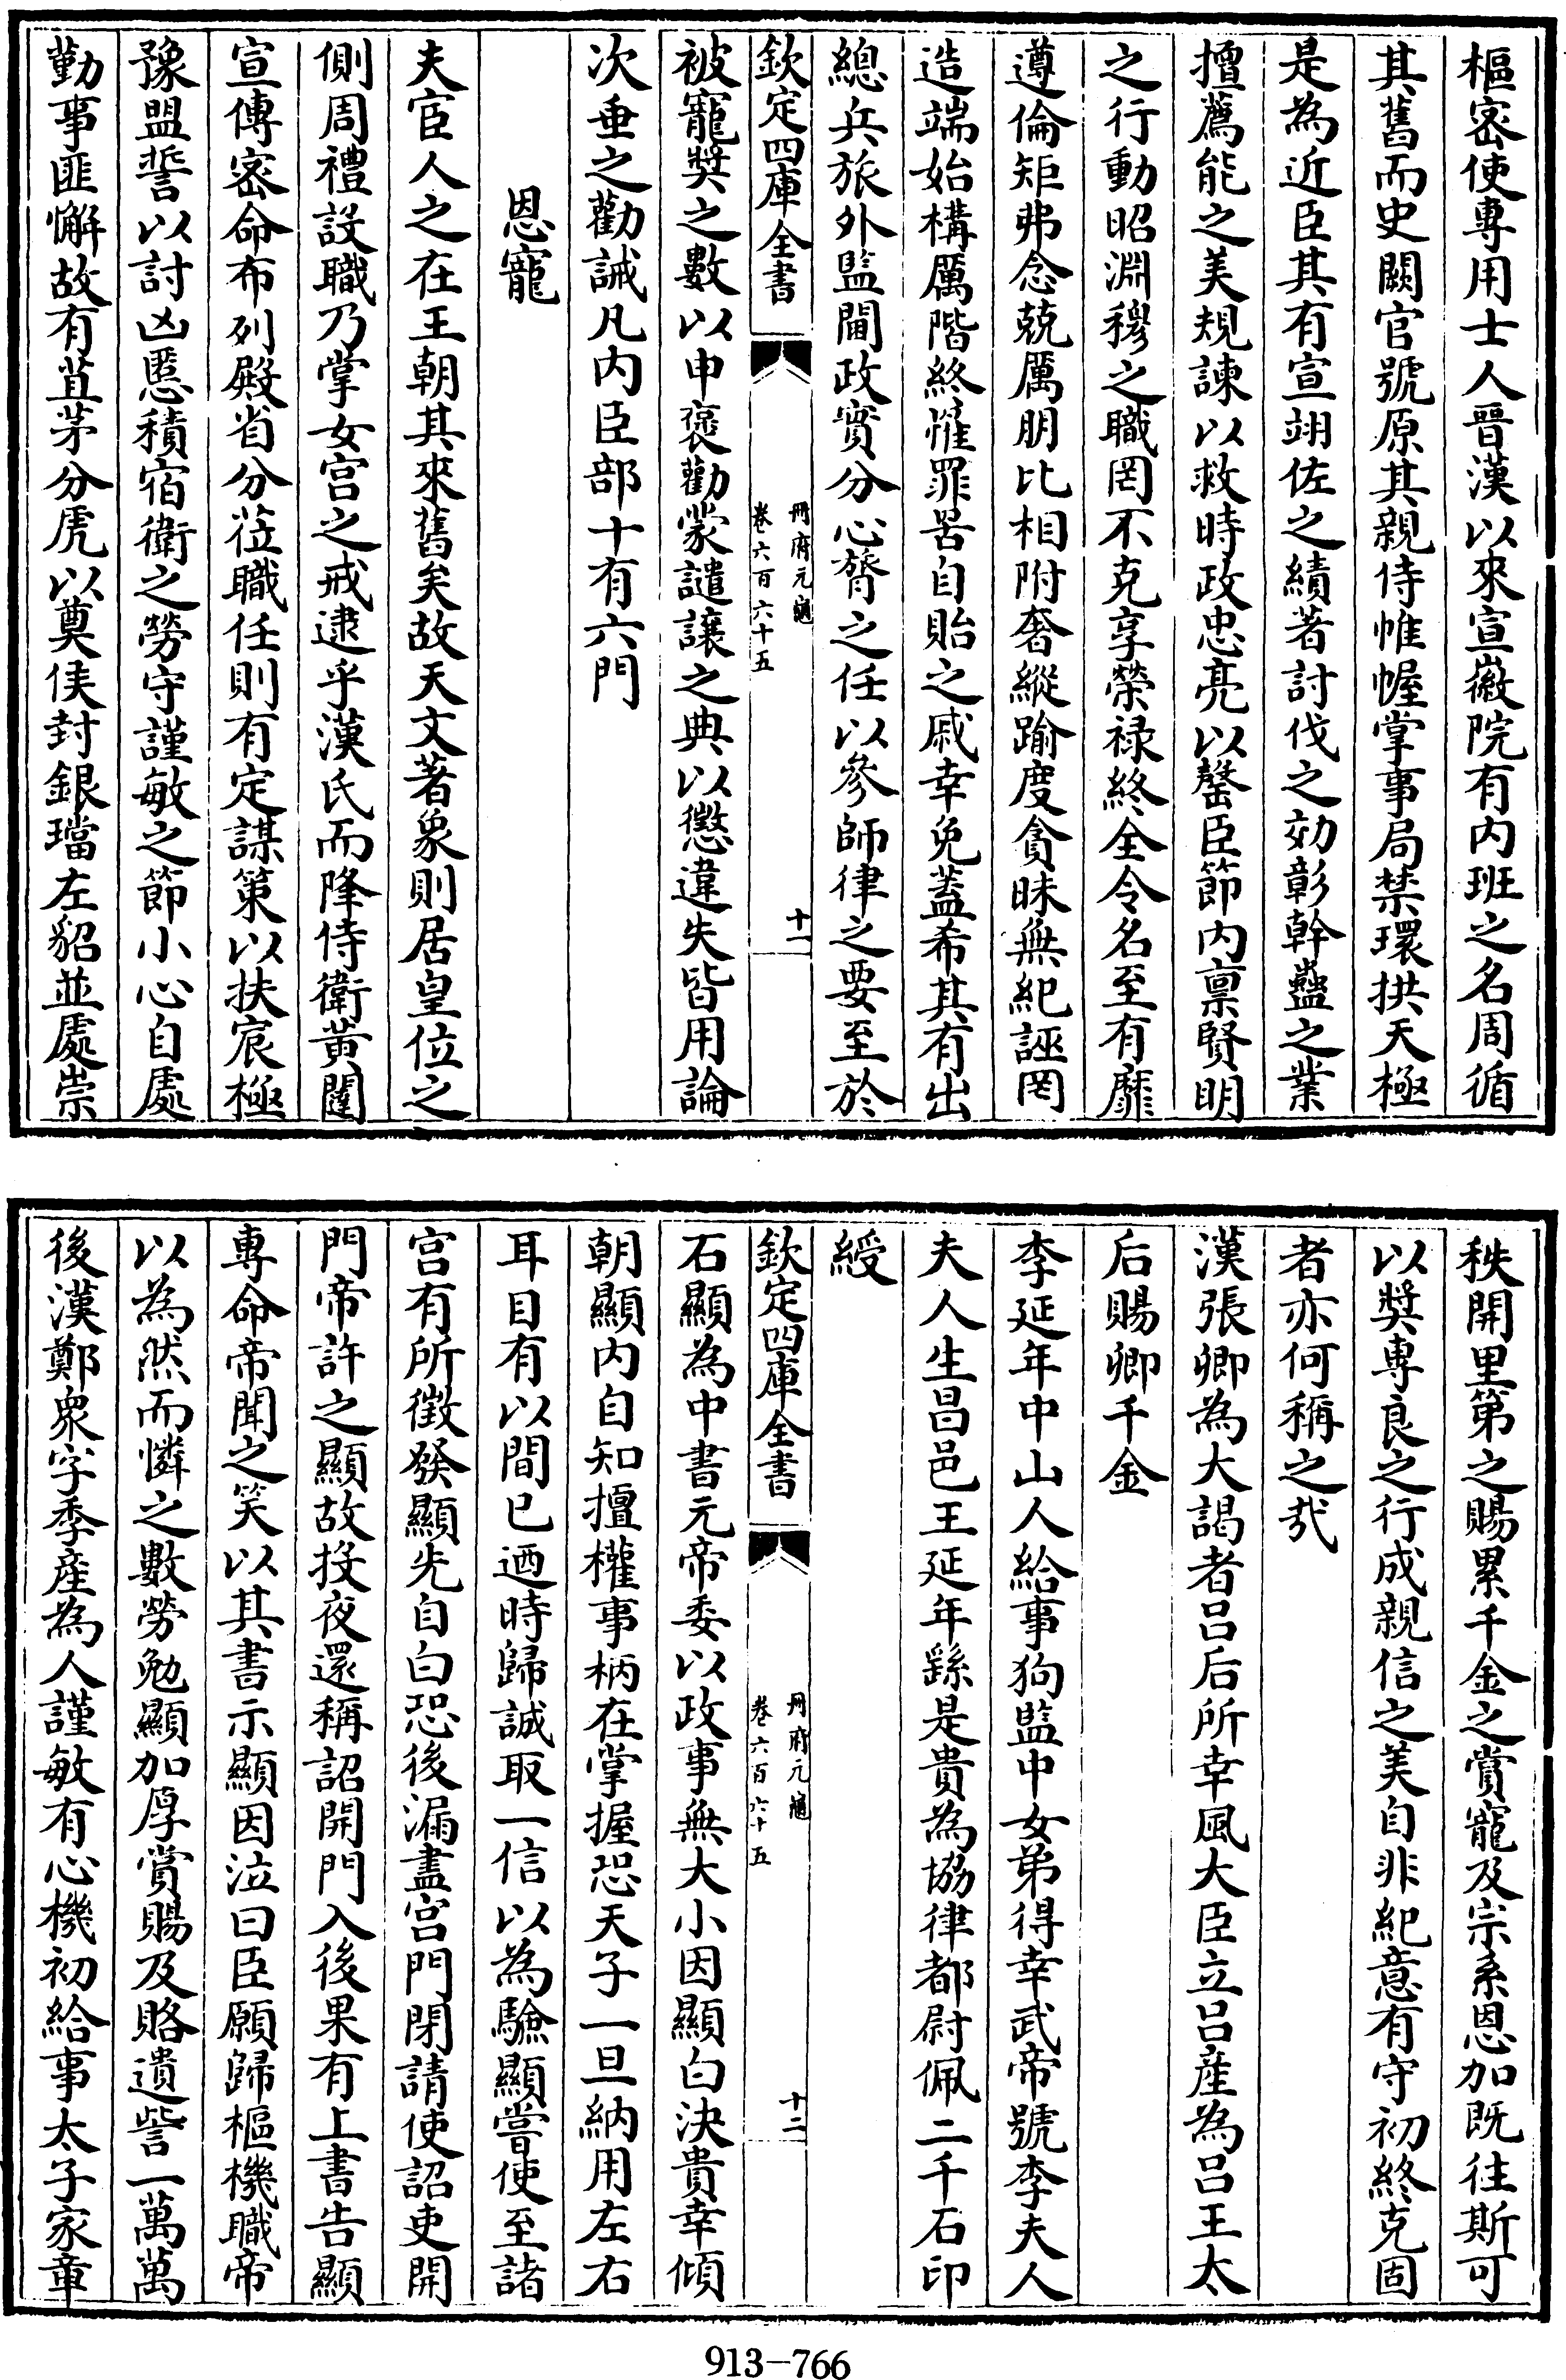 樞密使專用士人晉漢以來宣徽院有内班之名周循
其舊而史闕官號原其親侍帷幄掌事局禁環拱天極
是為近臣其有宣翊佐之績著討伐之効彰幹蠱之業
擅薦能之美規諫以救時政忠亮以罄臣節内禀賢明
之行動昭淵穆之職罔不克享榮禄終全令名至有靡
遵倫矩弗念兢厲朋比相附奢縱踰度貪昧無紀誣罔
造端始構厲階終罹罪罟自貽之戚幸免蓋希其有出
總兵旅外監閫政實分心膂之任以參師律之要至於
欽定四庫全書
冊府元龜
卷六百六十五
十一
被寵奬之數以申褒勸蒙譴讓之典以懲違失皆用論
次垂之勸誡凡内臣部十有六門
恩寵
夫宦人之在王朝其來舊矣故天文著象則居皇位之
側周禮設職乃掌女宫之戒逮乎漢氏而隆侍衛黄闥
宣傳密命布列殿省分莅職任則有定謀策以扶宸極
豫盟誓以討凶慝積宿衛之勞守謹敏之節小心自處
勤事匪懈故有苴茅分虎以奠侯封銀璫左貂並處崇
秩開里第之賜累千金之賞寵及宗系恩加既往斯可
以奬專良之行成親信之美自非紀意有守初終克固
者亦何稱之哉
漢張卿為大謁者吕后所幸風大臣立吕産為吕王太
后賜卿千金
李延年中山人給事狗監中女弟得幸武帝號李夫人
夫人生昌邑王延年繇是貴為協律都尉佩二千石印
綬
欽定四庫全書
冊府元龜
卷六百六十五
十二
石顯為中書元帝委以政事無大小因顯白決貴幸傾
朝顯内自知擅權事柄在掌握恐天子一旦納用左右
耳目有以間已迺時歸誠取一信以為驗顯嘗使至諸
宫有所徵發顯先自白恐後漏盡宫門閉請使詔吏開
門帝許之顯故投夜還稱詔開門入後果有上書告顯
專命帝聞之笑以其書示顯因泣曰臣願歸樞機職帝
以為然而憐之數勞勉顯加厚賞賜及賂遺訾一萬萬
後漢鄭衆字季産為人謹敏有心機初給事太子家章
913-766